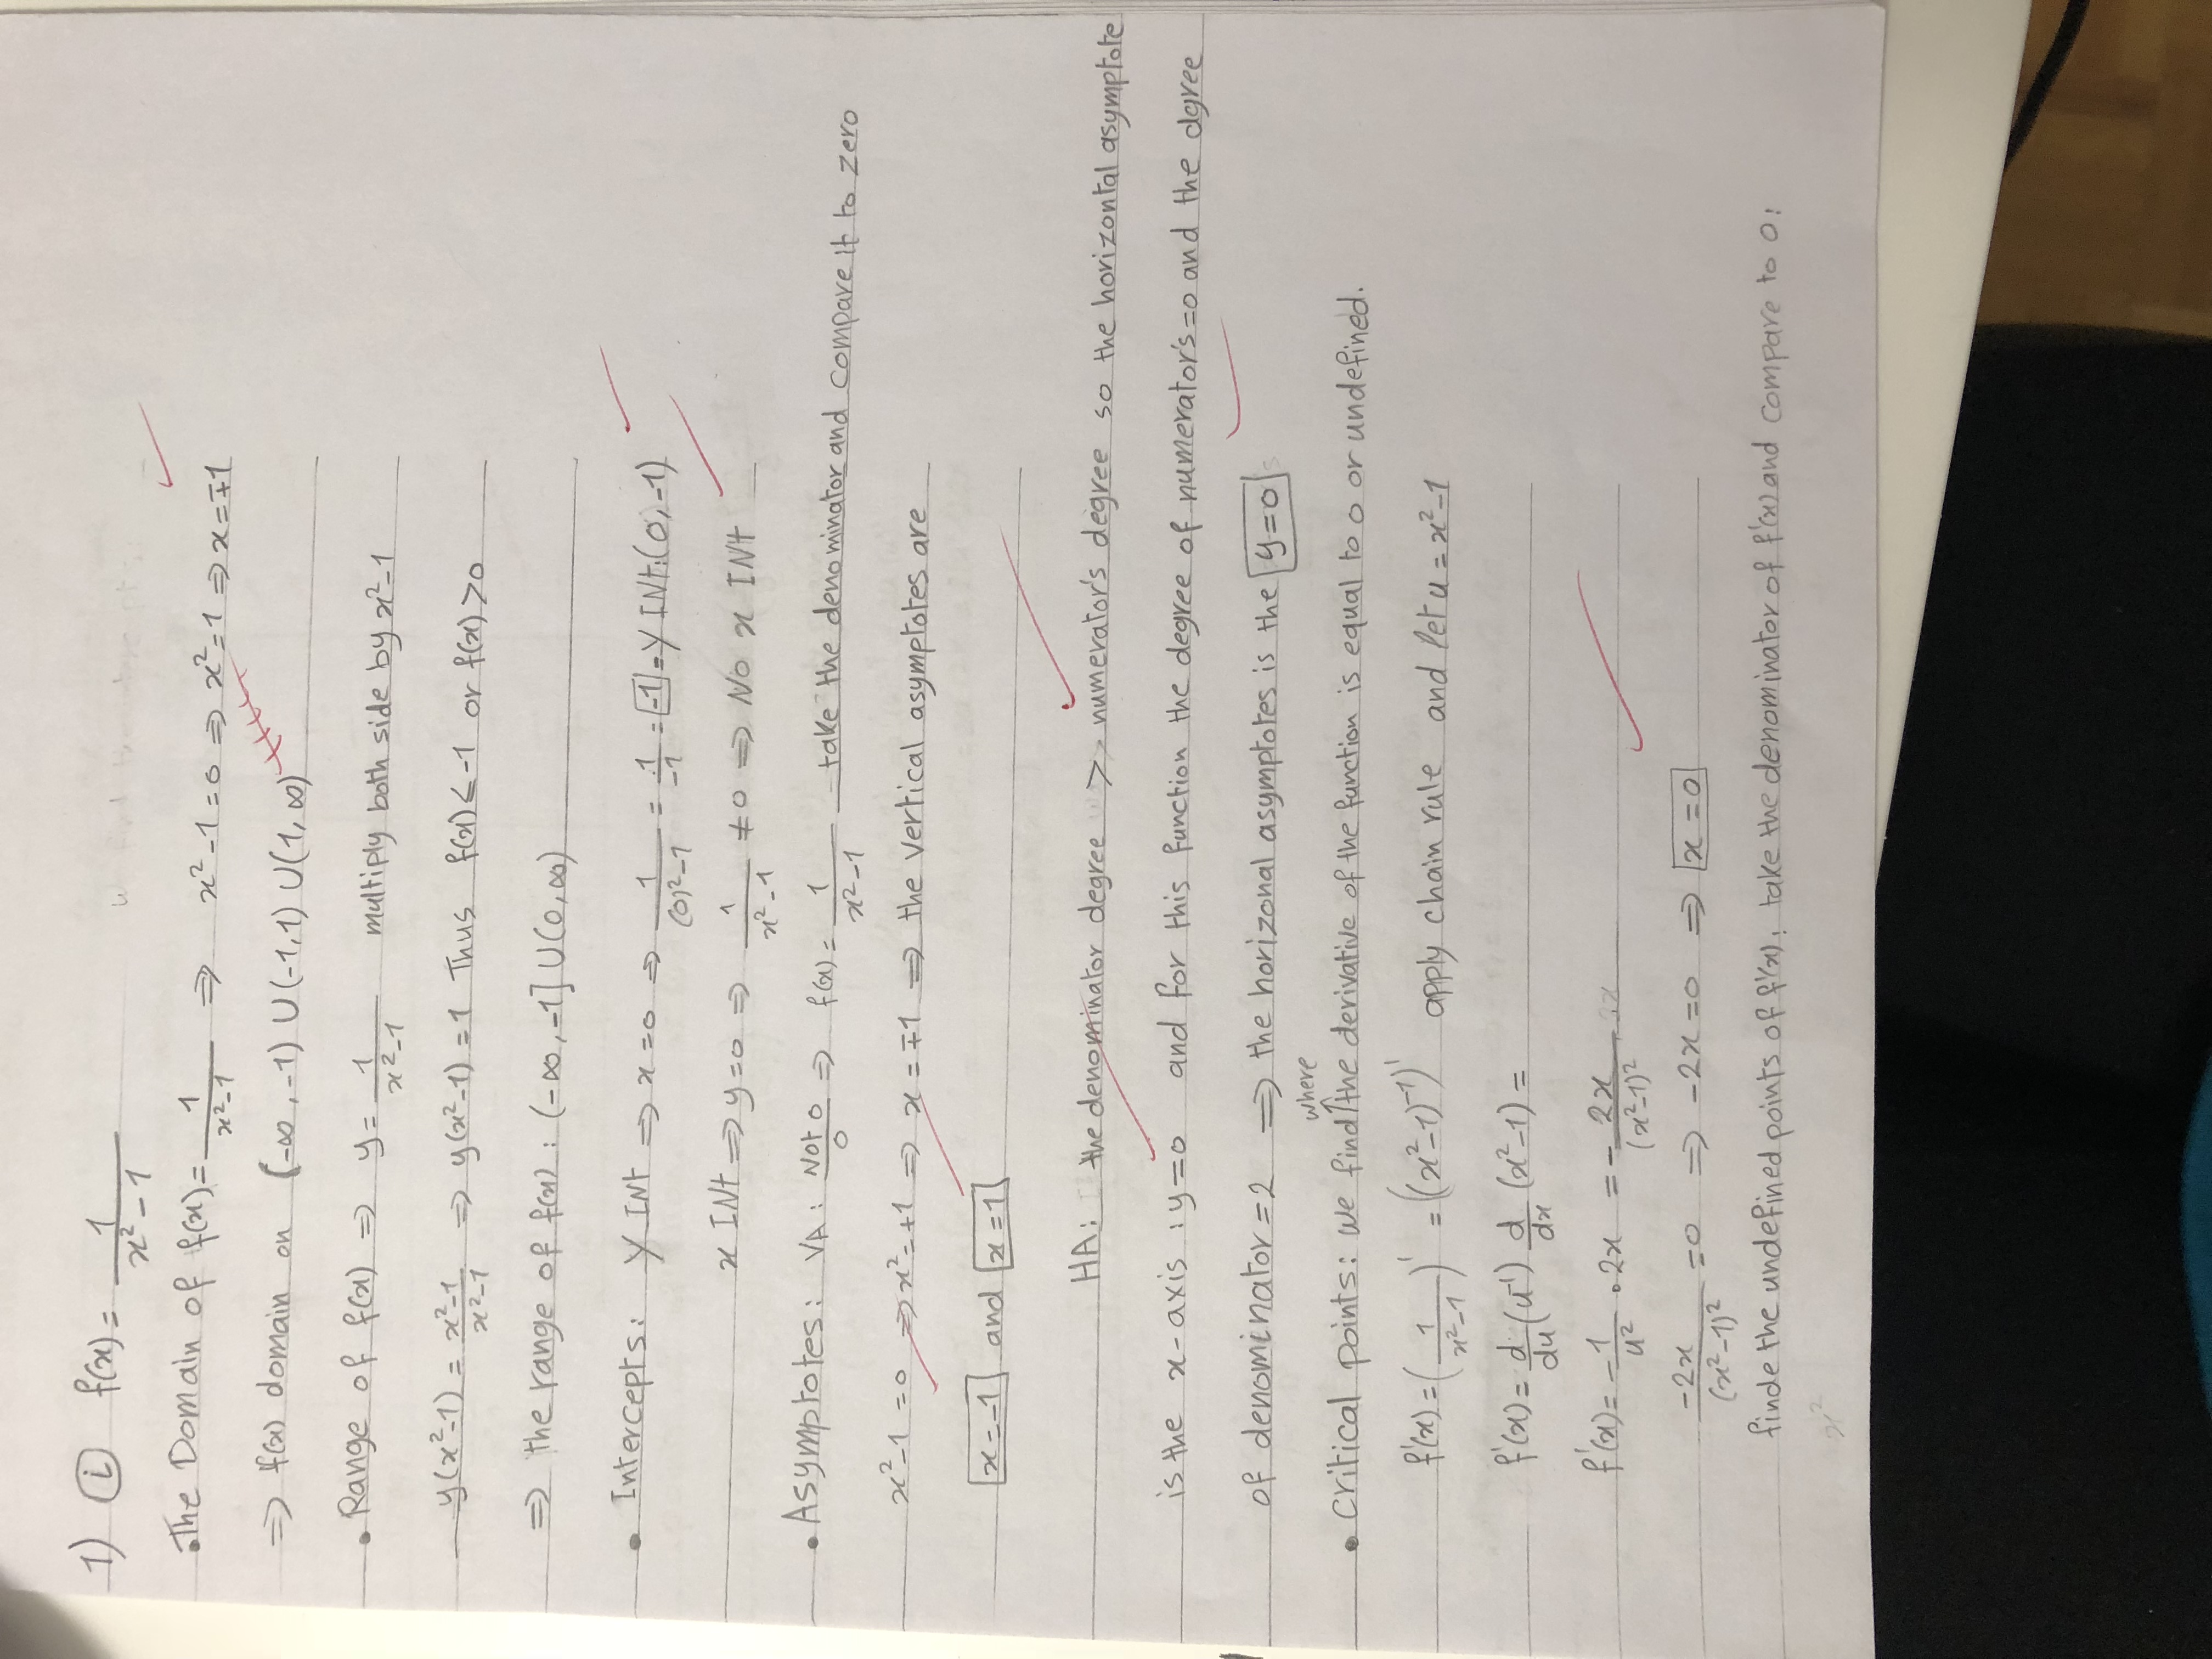 1) (i) f(x) = 1/(x²-1)
• The Domain of f(x) = 1/(x²-1) ⇒ x²-1=0 ⇒ x²=1 ⇒ x=∓1
⇒ f(x) domain on (-∞,-1) U (-1,1) U (1,∞)
• Range of f(x) ⇒ y = 1/(x²-1) multiply both side by x²-1
y(x²-1) = (x²-1)/(x²-1) ⇒ y(x²-1) = 1 Thus f(x) ≤ -1 or f(x) > 0
⇒ the range of f(x) : (-∞,-1] U (0,∞)
• Intercepts: Y INt ⇒ x=0 ⇒ 1/((0)²-1) = 1/-1 = -1 = Y INt.(0,-1)
x INt ⇒ y=0 ⇒ 1/(x²-1) ≠ 0 ⇒ No x INt
• Asymptotes: VA: Not 0/0 ⇒ f(x) = 1/(x²-1) take the denominator and compare it to zero
x²-1=0 ⇒ x²=+1 ⇒ x=∓1 ⇒ the vertical asymptotes are
x=-1 and x=1
HA: the denominator degree > numerator's degree so the horizontal asymptote
is the x-axis : y=0 and for this function the degree of numerator's=0 and the dgree
of denominator=2 ⇒ the horizonal asymptotes is the y=0
• Critical points: we find where the derivative of the function is equal to 0 or undefined.
f'(x) = (1/(x²-1))' = ((x²-1)⁻¹)' apply chain rule and let u = x²-1
f'(x) = d/du (u⁻¹) d/dx (x²-1) =
f'(x) = -1/u² • 2x = -2x/(x²-1)²
-2x/(x²-1)² = 0 ⇒ -2x=0 ⇒ x=0
finde the undefined points of f'(x): take the denominator of f'(x) and compare to 0: